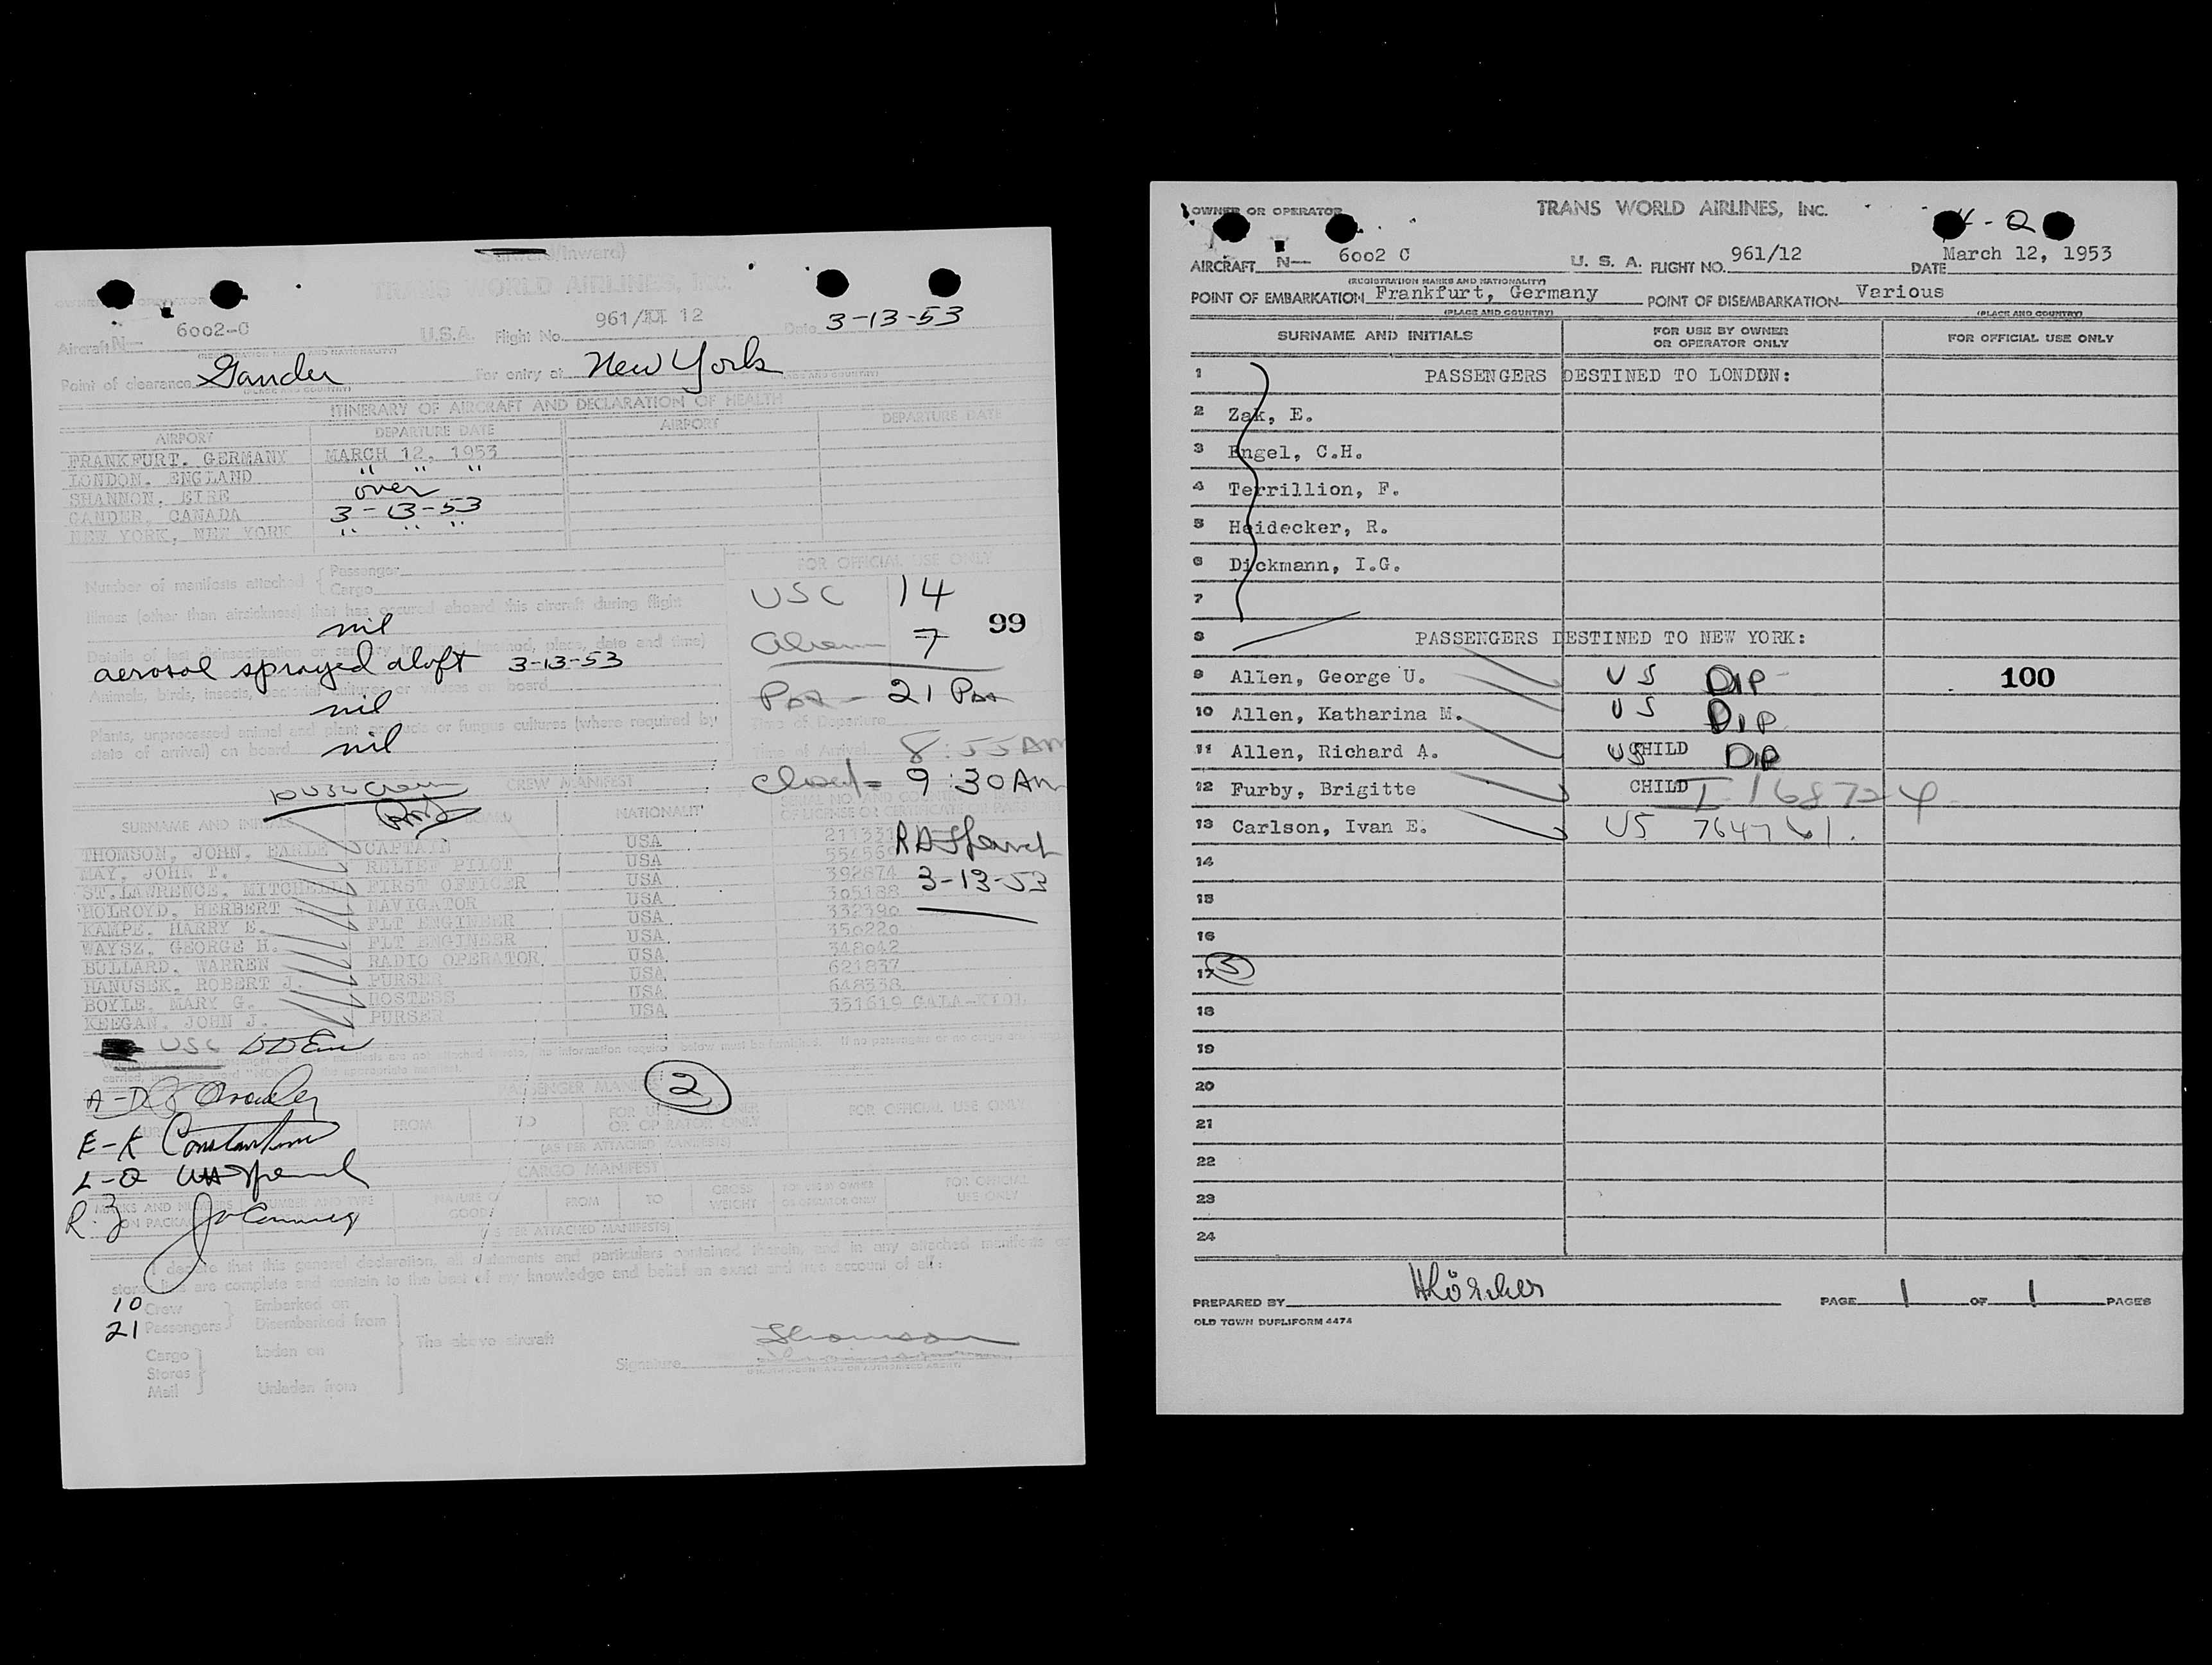 (Outward/Inward)
TRANS WORLD AIRLINES, INC.
OWNER OR OPERATOR
Aircraft N— 6002-C U.S.A. Flight No. 961/11 12 Date 3-13-53
(REGISTRATION MARKS AND NATIONALITY)
Point of clearance Gander For entry at New York
(PLACE AND COUNTRY) (PLACE AND COUNTRY)
ITINERARY OF AIRCRAFT AND DECLARATION OF HEALTH
AIRPORT DEPARTURE DATE AIRPORT DEPARTURE DATE
FRANKFURT, GERMANY MARCH 12, 1953
LONDON, ENGLAND " " "
SHANNON, EIRE over
GANDER, CANADA 3-13-53
NEW YORK, NEW YORK " " "
Number of manifests attached { Passenger
Cargo
FOR OFFICIAL USE ONLY
Illness (other than airsickness) that has occured aboard this aircraft during flight
nil
USC 14
99
Details of last disinsectization or sanitary treatment (method, place, date and time)
Alien 7
aerosol sprayed aloft 3-13-53
Animals, birds, insects, bacterial cultures or viruses on board
nil
Pax - 21 Pax
Plants, unprocessed animal and plant products or fungus cultures (where required by
state of arrival) on board nil
Time of Departure
Time of Arrival 8:55 AM
Clout = 9:30 AM
10 USC Crew
CREW MANIFEST
SURNAME AND INITIALS NATIONALITY SERIAL NO. AND
OF LICENSE OR CERTIFICATE
THOMSON, JOHN, EARLE CAPTAIN USA 211331
MAY, JOHN T. RELIEF PILOT USA 554569
ST.LAWRENCE, MITCHELL FIRST OFFICER USA 392874
HOLROYD, HERBERT NAVIGATOR USA 305188
KAMPE, HARRY E. FLT ENGINEER USA 332390
WAYSZ, GEORGE H. FLT ENGINEER USA 350220
BULLARD, WARREN RADIO OPERATOR USA 348042
HANUSEK, ROBERT J. PURSER USA 621837
BOYLE, MARY G. HOSTESS USA 648338
KEEGAN, JOHN J. PURSER USA 351619
3-13-53
USC
PASSENGER MANIFEST
2
A-D
E-K Constantine
L-Q
R-Z
FROM TO FOR USE BY OWNER OR OPERATOR ONLY FOR OFFICIAL USE ONLY
(AS PER ATTACHED MANIFESTS)
CARGO MANIFEST
MARKS AND NUMBERS ON PACKAGES NUMBER AND TYPE NATURE OF GOODS FROM TO GROSS WEIGHT FOR USE BY OWNER OR OPERATOR ONLY FOR OFFICIAL USE ONLY
(AS PER ATTACHED MANIFESTS)
I declare that this general declaration, all statements and particulars contained therein, and in any attached manifests or
stores lists are complete and contain to the best of my knowledge and belief an exact and true account of all:
10 Crew } Embarked on
21 Passengers } Disembarked from
The above aircraft
Cargo } Laden on
Stores
Mail } Unladen from
Signature Thomson
OWNER OR OPERATOR TRANS WORLD AIRLINES, INC. L-Q
AIRCRAFT N— 6002 C U. S. A. FLIGHT NO. 961/12 DATE March 12, 1953
(REGISTRATION MARKS AND NATIONALITY)
POINT OF EMBARKATION Frankfurt, Germany POINT OF DISEMBARKATION Various
(PLACE AND COUNTRY) (PLACE AND COUNTRY)
SURNAME AND INITIALS FOR USE BY OWNER OR OPERATOR ONLY FOR OFFICIAL USE ONLY
1 PASSENGERS DESTINED TO LONDON:
2 Zak, E.
3 Engel, C.H.
4 Terrillion, F.
5 Heidecker, R.
6 Dickmann, I.G.
7
8 PASSENGERS DESTINED TO NEW YORK:
9 Allen, George U. US DIP 100
10 Allen, Katharina M. US DIP
11 Allen, Richard A. US CHILD DIP
12 Furby, Brigitte CHILD I-168724
13 Carlson, Ivan E. US 764761.
14
15
16
17 5
18
19
20
21
22
23
24
PREPARED BY PAGE 1 OF 1 PAGES
OLD TOWN DUPLIFORM 4474